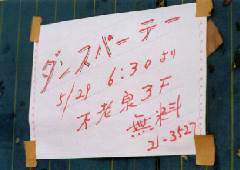 ダンスパーテー
5/29 6:30より
不老泉3F
無料
21-3527